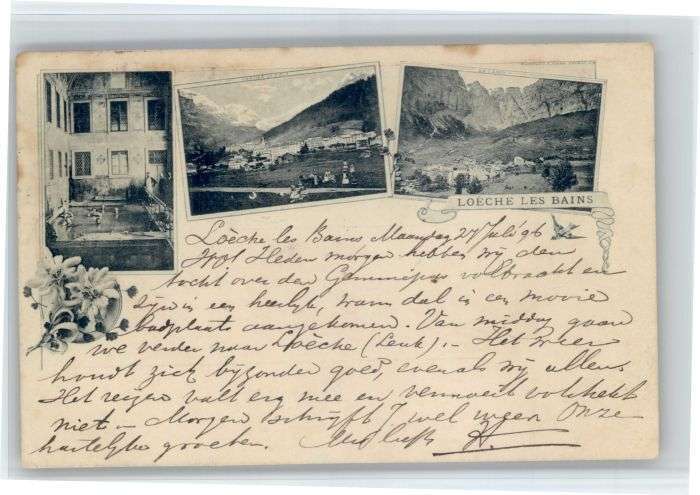 LOÈCHE LES BAINS
Loèche les Bains Maandag 27 Juli 96
Heden morgen hebben wij den
tocht over den Gemmipas volbracht en
zijn in een heerlijk, warm dal in een mooie
badplaats aangekomen. Van middag gaan
we verder naar Loèche (Leuk). - Het weer
houdt zich bijzonder goed, evenals wij allen.
Het reizen valt erg mee en vermoeit volstrekt
niet - Morgen schrijft J wel weer Onze
hartelijke groeten. liefs H.